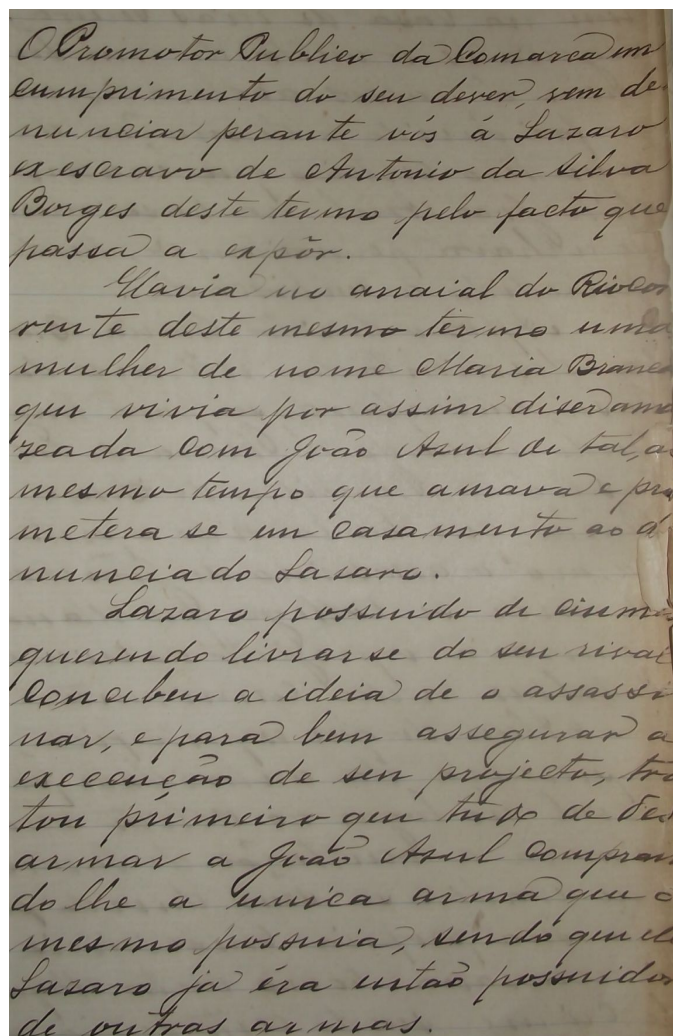 O Promotor Publico da Comarca em
cumprimento do seu dever, vem de
nunciar perante vós á Lazaro
exescravo de Antonio da Silva
Borges deste termo pelo facto que
passa a expôr.
Havia no arraial do Rio Cor
rente deste mesmo termo uma
mulher de nome Maria Branca
que vivia por assim diser ama
zeada com João Asul de tal, a
mesmo tempo que amava e pro
metera se em casamento ao d
nunciado Lasaro.
Lazaro possuido de ciumes
querendo livrarse do seu rival
concebeu a ideia de o assassi
nar, e para bem assegurar a
execcução de seu projecto, tra
tou primeiro que tudo de des
armar a João Asul compran
dolhe a unica arma que o
mesmo possuia, sendo que elle
Lasaro ja éra então possuidor
de outras armas.